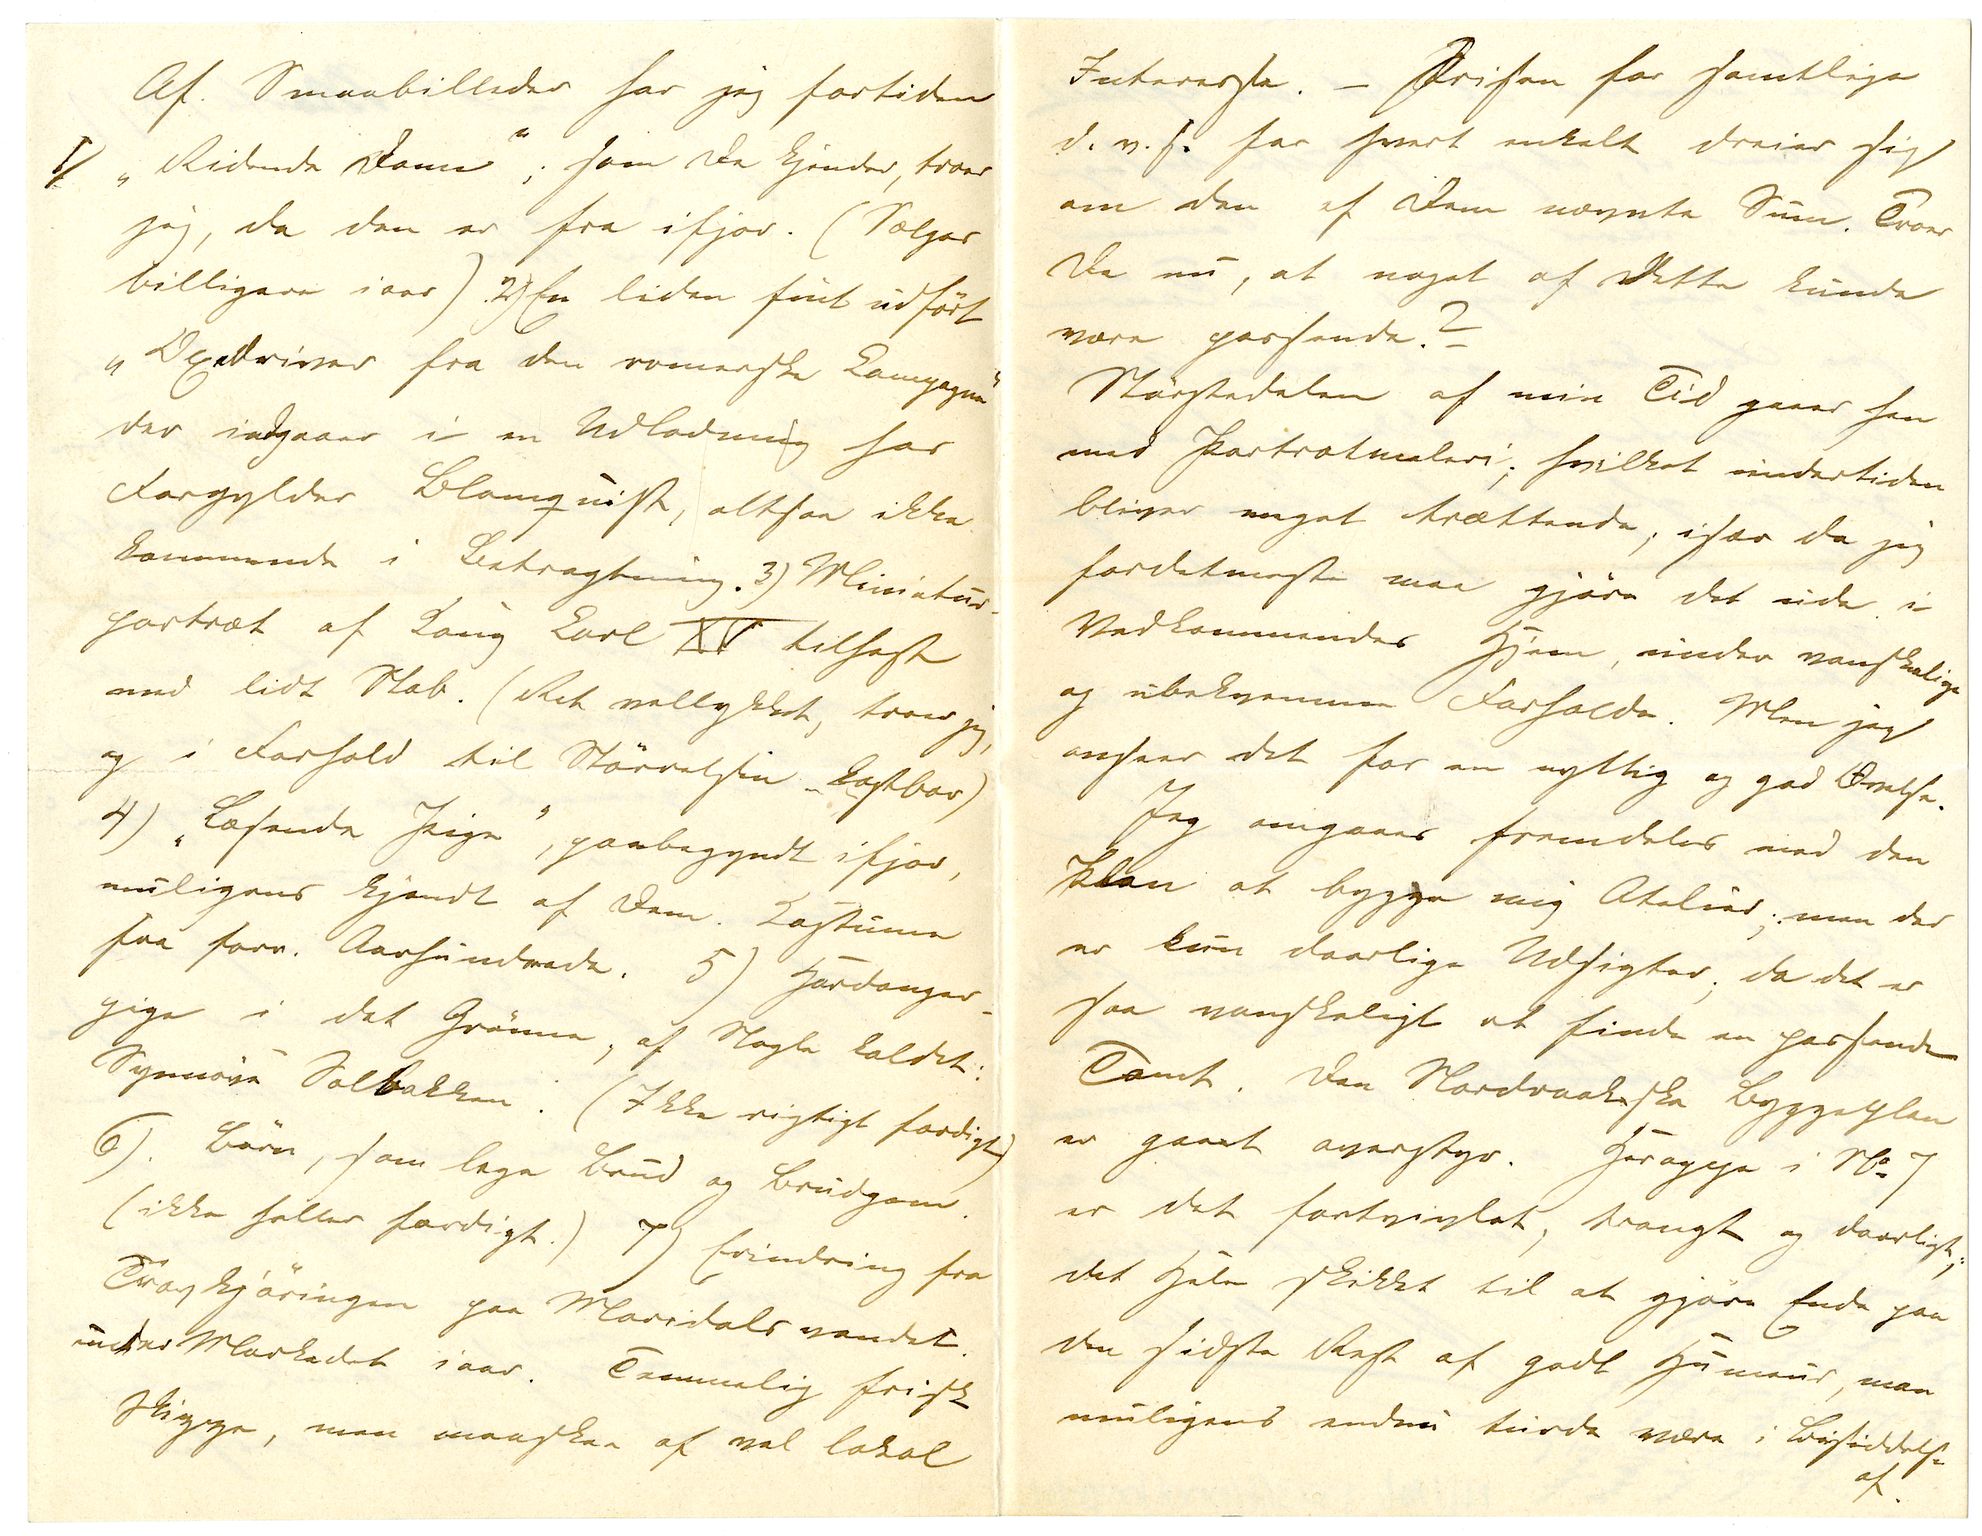 Af. Smaabilleder har jeg fortiden
1/ „Ridende Dame“, som De kjender, troer
jeg, da den er fra ifjor. (Sælges
billigere iaar) 2) En liden fint udført
„Oxedriver fra den romerske Campagne“
der indgaaer i en Udlodning hos
Forgylder Blomquist, altsaa ikke
kommende i Betragtning. 3) Miniatur-
portræt af Kong Carl XV tilhest
med lidt Stab. (Ret vellykket, troer jeg,
og i Forhold til Størrelsen kostbar)
4) „Læsende Pige“, paabegyndt ifjor,
muligens kjendt af Dem. Costume
fra forr. Aarhundrede. 5) Hardanger-
pige i det Grønne, af Nogle kaldet:
Synnøve Solbakken. (Ikke rigtigt færdigt)
6). Børn, som lege Brud og Brudgom.
(ikke heller færdigt.) 7) Erindring fra
Travkjøringen paa Maridalsvandet.
under Markedet iaar. Temmelig frisk
Skizze, men maaskee af vel lokal
Interesse. – Prisen for samtlige
d. v. s. for hvert enkelt dreier sig
om den af Dem nævnte Sum. Troer
De nu, at noget af Dette kunde
være passende?–
Størstedelen af min Tid gaaer hen
med Portrætmaleri; hvilket undertiden
bliver noget trættende, især da jeg
fordetmeste maa gjøre det ude i
Vedkommendes Hjem, under vanskelige
og ubekvemme Forholde. Men jeg
anseer det for en nyttig og god Øvelse.
Jeg omgaaes fremdeles med den
Plan at bygge mig Atelier; men der
er kun daarlige Udsigter, da det er
saa vanskeligt at finde en passende
Tomt. Den Nordraakske Byggeplan
er gaaet overstyr. Heroppe i No 7
er det fortvivlet, trangt og daarligt;
det Hele skikket til at gjøre Ende paa
den sidste Rest af godt Humeur, man
muligens endnu turde være i Besiddelse
af.